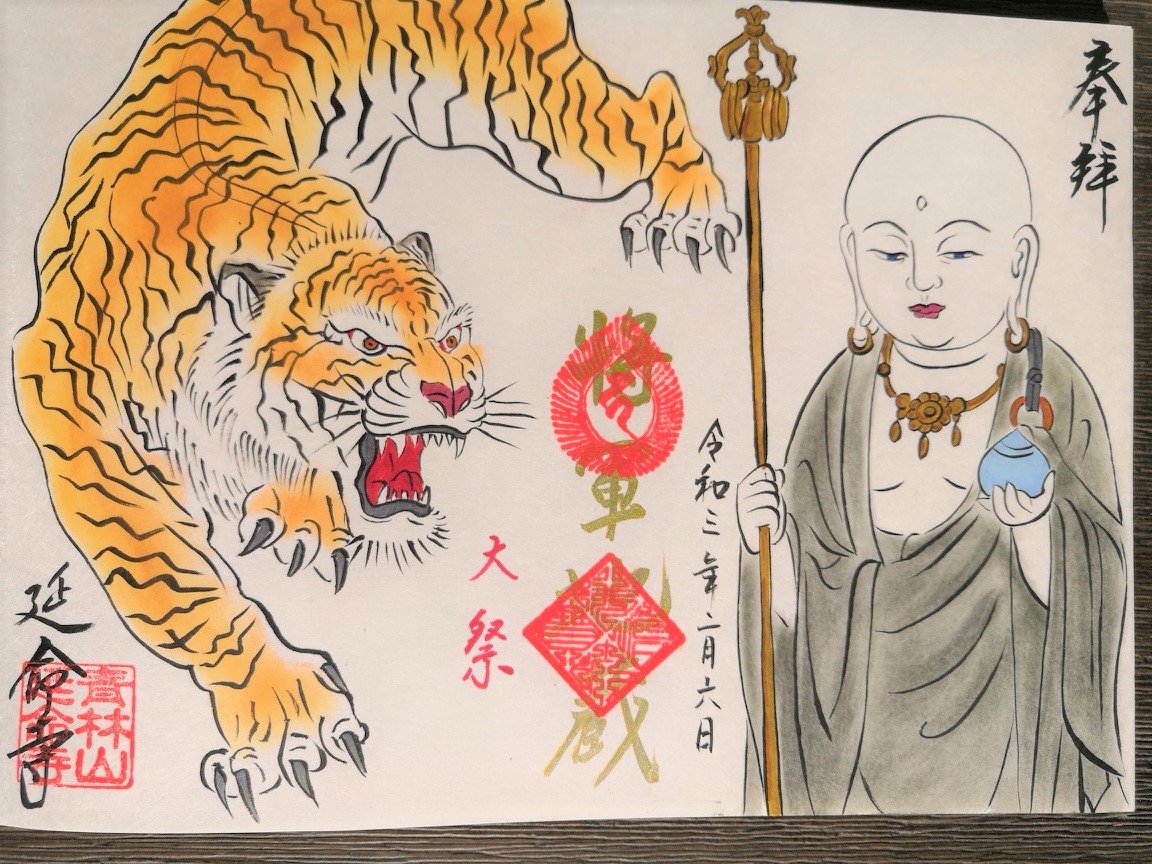 奉拝
令和三年二月六日
将軍地蔵
大祭
延命寺
青林山
延命寺